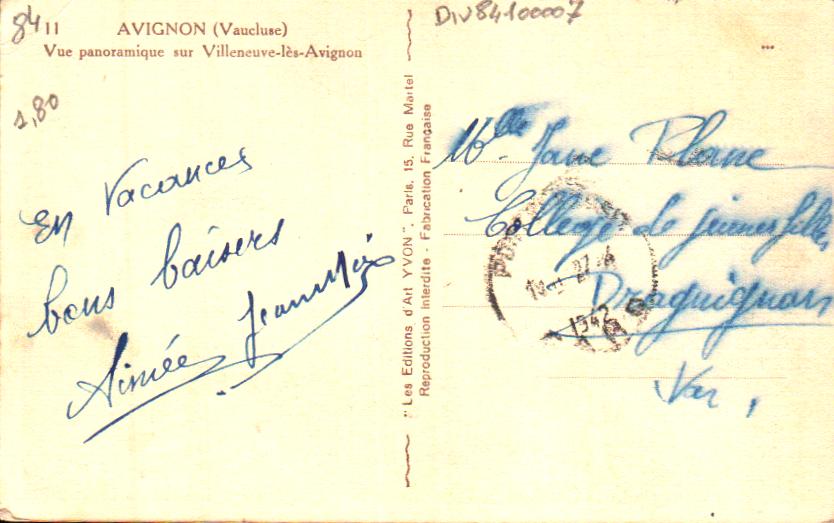 84
11 AVIGNON (Vaucluse)
Vue panoramique sur Villeneuve-lès-Avignon
1,80
En Vacances
bons baisers
Aimée
"Les Editions d'Art YVON", Paris, 15, Rue Martel
Reproduction Interdite - Fabrication Française
Div84100007
Mlle Jane
College de jeunes filles
Draguignan
Var,
1942